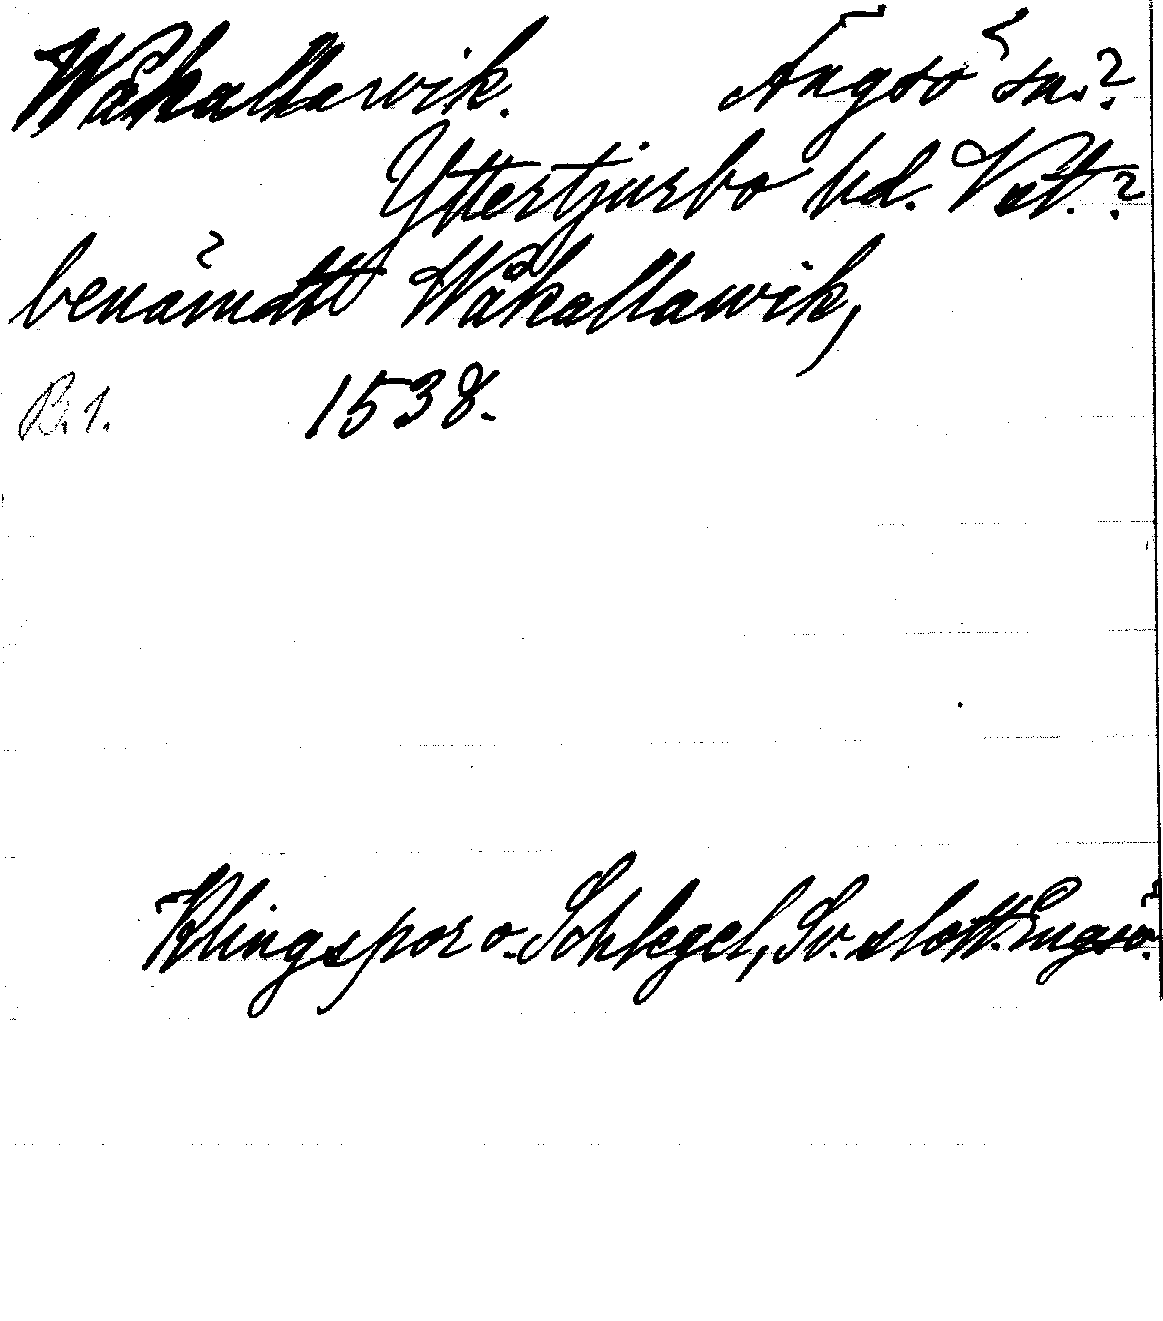 Wåkallawik. Ängsö sn.?
Yttertjurbo hd. Vst.?
benämdt Wåkallawik,
B. 1. 1538.
Klingspor o. Schlegel, Sv. slott. Engsö.